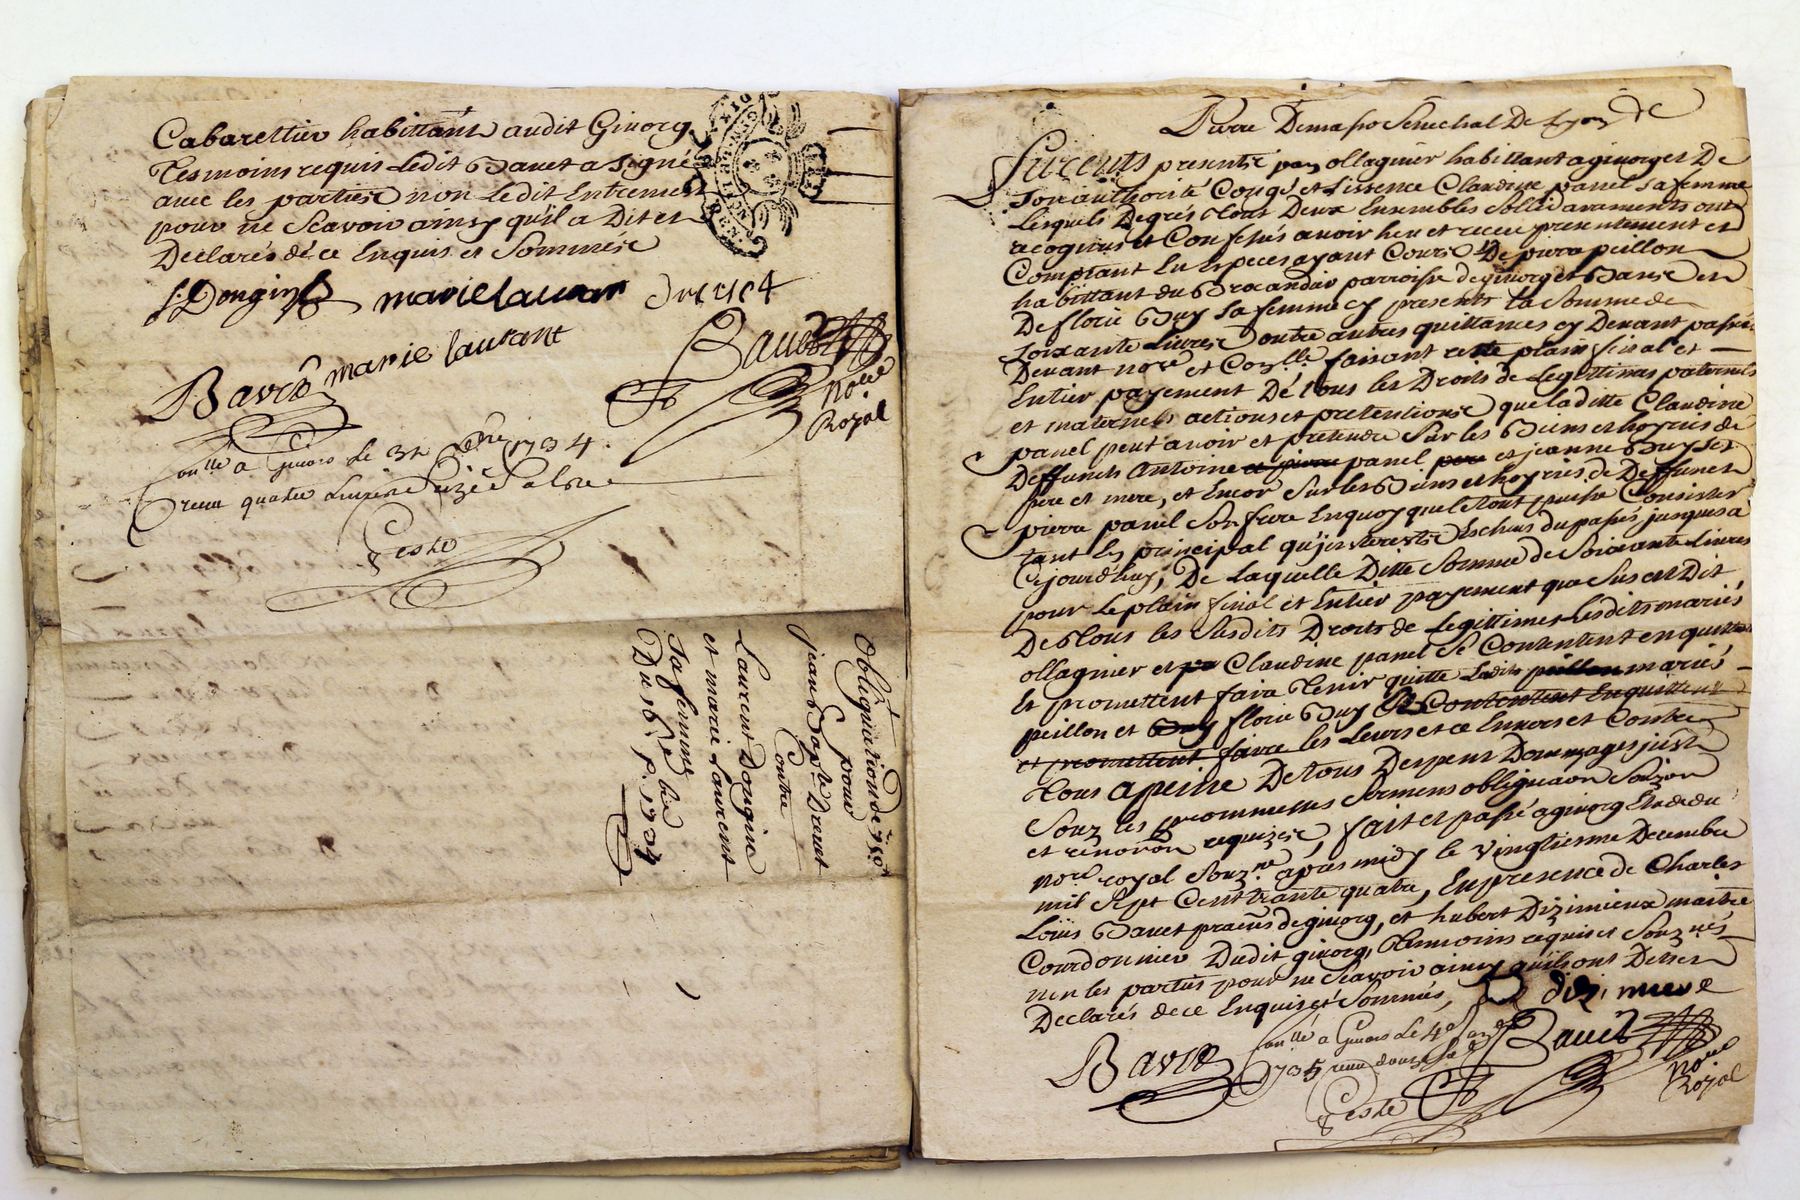 Cabarettier habittant audit Givorg
Tesmoins requis Ledit Bavet a signé
avec les parties non Ledit Entremes
pour ne Scavoir ainsy quil a Dit et
Declarés dé ce Enquis et Sommése
Dongin marie lauran Drevet
Bavet marie laurant Bavet
no.re
Royal
Con.llé a Givors Le 31 Xbre 1734
receu quatre Livres Seize Sols
Geste
Obligation de 150
pour
jean Bap.te Drevet
Contre
Laurent Dongine
et marie Laurent
Sa femme
Du 16 Xbre 1734
Pierre Demasso Senechal De Lyon
Furent presents ollagnier habittant a givorg et De
Son authorité Congé et Lissence Claudine panel sa femme
Lesquels De grés Tous Deux Ensembles Sollidairements ont
recognus et Confessés avoir heu et receu presentement et
Comptant En Especes ayant Cours De pierre peillon
habittant du parroisse de givorg et Banse et
De florie Buy Sa femme cy presents la Somme de
soixante Livres Outre autres quittances cy Devant passée
Devant no.re et Con.llé faisant reste plain final et
Entier payement Dé Tous les Droits de Legittimes paternels
et maternels actions et pretentions que laditte Claudine
panel peut avoir et pretendre Sur les Biens et hoyries de
Deffunts Antoine et pierre panel pere et jeanne Buy Ses
pere et mere, et Encor Sur les Biens et hoyries de Deffunct
pierre panel Son frere Enquoy que le Tout puisse Consister
tant En principal qu'jnterests Escheus du passés jusques a
Cejourd'huy, De Laquelle Ditte Somme de Soixante Livres
pour Le plain final et Entier payement que Sus est Dit
De Tous les Susdits Droits de Legittimes Lesdits mariés
ollagnier et pa Claudine panel Se Contentent en quittent
Et promettent faire Tenir quitte Ledits peillon mariés
peillon et Buy florie Buy Se Contentent Enquittent
et promettent faire les Leurs et ce Envers et Contre
Tous a peine De Tous Despens Dommages jnsts
Souz les promesses Sermens obligaon Souzon
et renonon requizes, fait et passé a givorg Etude du
no.re royal Souz.né apres midy le vingtieme Decembre
mil Sept Cent trante quatre, En presence de Charles
Loüis Bavet praens de givorg, et hubert Dizimieux maitre
Courdonnier Dudit givorg, Tesmoins requis et Souz.nés
non les parties pour ne Scavoir ainsy qu'ils ont Dittes
Declarés de ce Enquis et Sommés, dizimieux
Bavet Con.llé a Givors Le 4e Bavet
1735 receu douze Sols no.re
Geste Royal